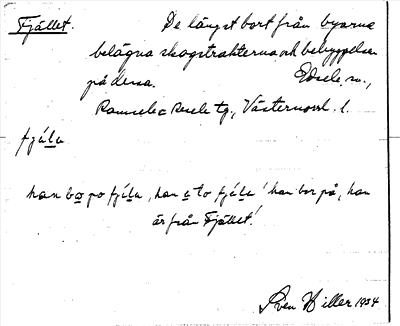 Fjället. De längst bort från byarna
belägna skogstrakterna och bebyggelsen
på dessa. Edsele sn.,
Ramsele o Resele tg., Västernorrl. l.
fjälu
han bo po fjälu, han a to fjälu! han bor på, han
är från Fjället!
Sven Hiller 1934